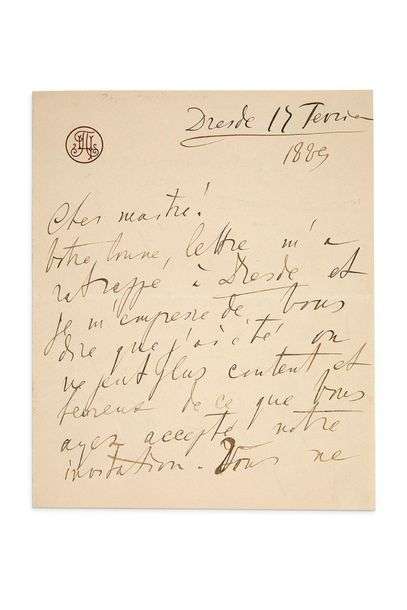 Dresde 17 Fevrier
1889
Cher maître!
Votre bonne lettre m'a
ratrappé à Dresde et
je m'empresse de Vous
dire que j'ai été on
ne peut plus content et
heureux de ce que Vous
ayez accepté notre
invitation. Vous ne